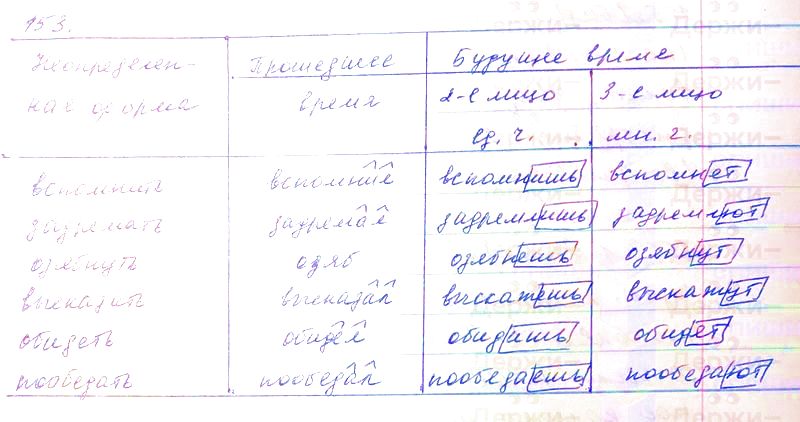 153.
Неопределен- Прошедшее Будущее время
ная форма время 2-е лицо 3-е лицо
ед. ч. мн. ч.
вспомнить вспомнил вспомнишь вспомнет
задремать задремал задремлишь задремлют
озябнуть озяб озябнешь озябнут
высказать высказал выскажешь выскажут
обидеть обидел обидишь обидет
пообедать пообедал пообедаешь пообедают